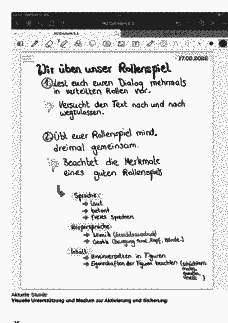 17.02.2022
Wir üben unser Rollenspiel
① Lest euch euren Dialog mehrmals
in verteilten Rollen vor.
Versucht den Text nach und nach
wegzulassen.
② Übt euer Rollenspiel mind.
dreimal gemeinsam.
Beachtet die Merkmale
eines guten Rollenspiels
Sprache:
→ laut
→ betont
→ freies sprechen
Körpersprache:
→ Mimik (Gesichtsausdruck)
→ Gestik (Bewegung Arme, Kopf, Hände)
Inhalt:
→ Hineinversetzen in Figuren
→ Eigenschaften der Figur beachten
Aktuelle Stunde
Visuelle Unterstützung und Medium zur Aktivierung und Sicherung: